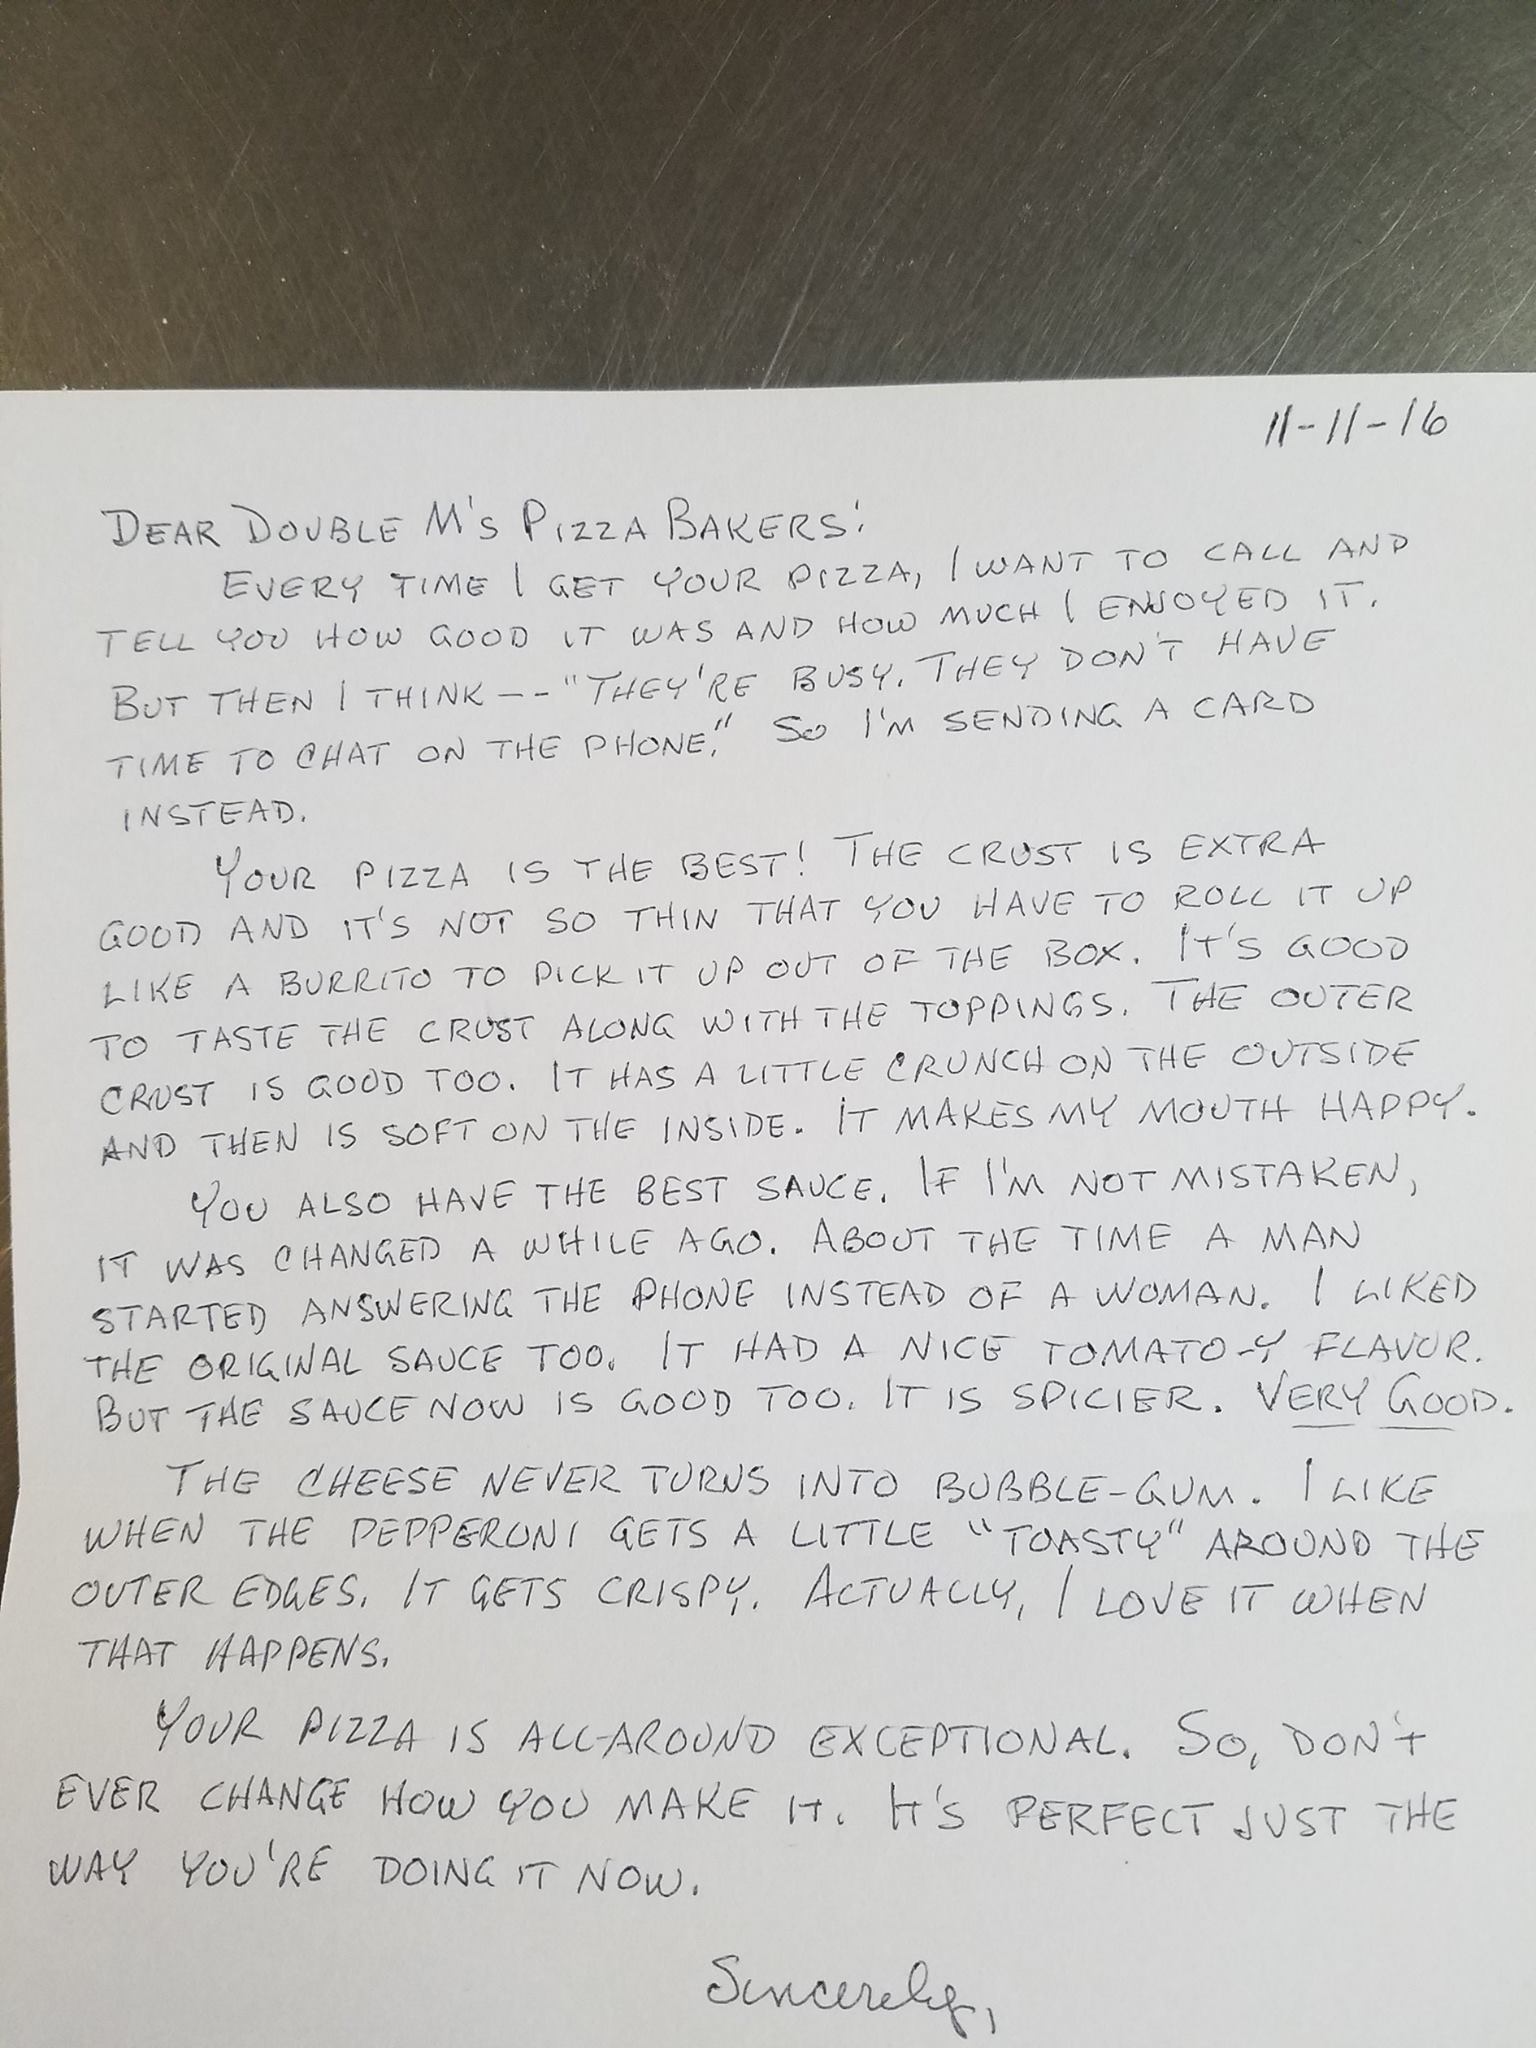 11-11-16
DEAR DOUBLE M'S PIZZA BAKERS:
EVERY TIME I GET YOUR PIZZA, I WANT TO CALL AND
TELL YOU HOW GOOD IT WAS AND HOW MUCH I ENJOYED IT.
BUT THEN I THINK -- "THEY'RE BUSY. THEY DON'T HAVE
TIME TO CHAT ON THE PHONE." SO I'M SENDING A CARD
INSTEAD.
YOUR PIZZA IS THE BEST! THE CRUST IS EXTRA
GOOD AND IT'S NOT SO THIN THAT YOU HAVE TO ROLL IT UP
LIKE A BURRITO TO PICK IT UP OUT OF THE BOX. IT'S GOOD
TO TASTE THE CRUST ALONG WITH THE TOPPINGS. THE OUTER
CRUST IS GOOD TOO. IT HAS A LITTLE CRUNCH ON THE OUTSIDE
AND THEN IS SOFT ON THE INSIDE. IT MAKES MY MOUTH HAPPY.
YOU ALSO HAVE THE BEST SAUCE. IF I'M NOT MISTAKEN,
IT WAS CHANGED A WHILE AGO. ABOUT THE TIME A MAN
STARTED ANSWERING THE PHONE INSTEAD OF A WOMAN. I LIKED
THE ORIGINAL SAUCE TOO. IT HAD A NICE TOMATO-Y FLAVOR.
BUT THE SAUCE NOW IS GOOD TOO. IT IS SPICIER. VERY GOOD.
THE CHEESE NEVER TURNS INTO BUBBLE-GUM. I LIKE
WHEN THE PEPPERONI GETS A LITTLE "TOASTY" AROUND THE
OUTER EDGES. IT GETS CRISPY. ACTUALLY, I LOVE IT WHEN
THAT HAPPENS.
YOUR PIZZA IS ALL-AROUND EXCEPTIONAL. SO, DON'T
EVER CHANGE HOW YOU MAKE IT. IT'S PERFECT JUST THE
WAY YOU'RE DOING IT NOW.
Sincerely,